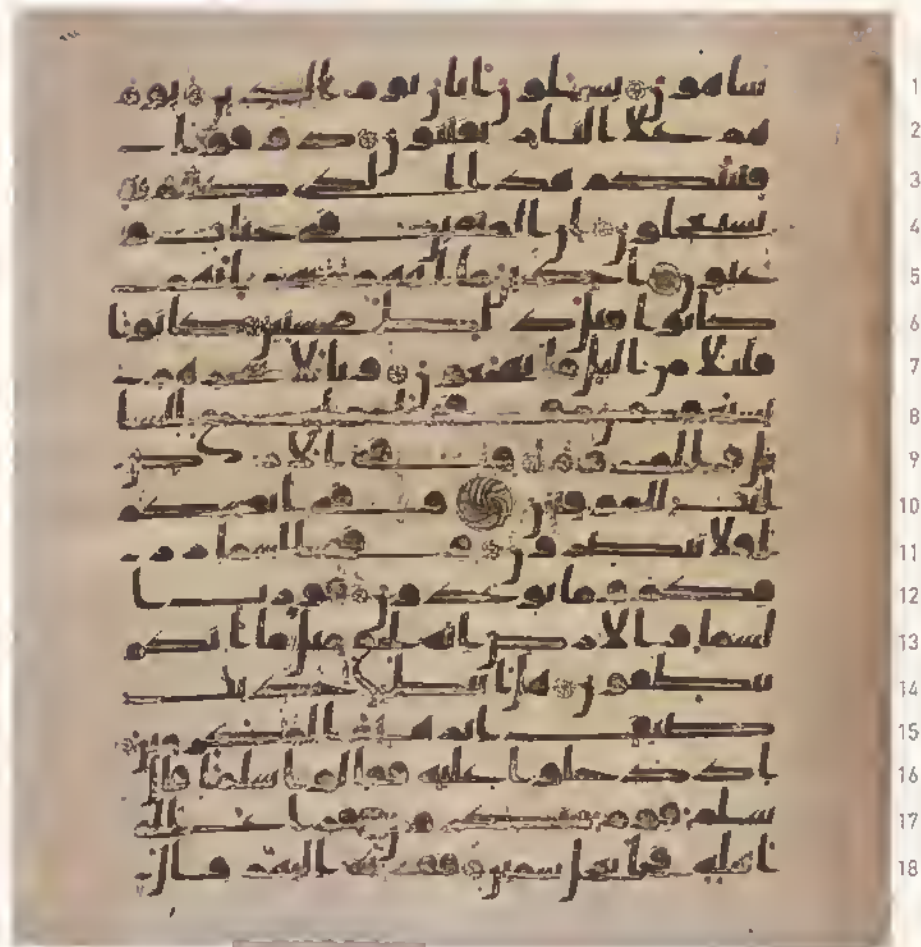 ساهون يسلون ايان يوم الدين يوم 1
هم على النار يفتنون ذوقوا 2
فتنتكم هذا الذي كنتم به 3
تستعجلون ان المتقين في جنت و 4
عيون اخذين ما اتيهم ربهم انهم 5
كانوا قبل ذلك محسنين كانوا 6
قليلا من اليل ما يهجعون وبالاسحار هم 7
يستغفرون وفي امولهم حق للسا 8
ئل والمحروم وفي الارض 9
ايت للموقنين وفي انفسكم 10
افلا تبصرون وفي السما رز 11
قكم وما توعدون فورب 12
السما والارض انه لحق مثل ما انكم 13
تنطقون هل اتيك حديث 14
ضيف ابرهيم المكرمين 15
اذ دخلوا عليه فقالوا سلما قال 16
سلم قوم منكرون فراغ الى 17
اهله فجا بعجل سمين فقربه اليهم قال 18